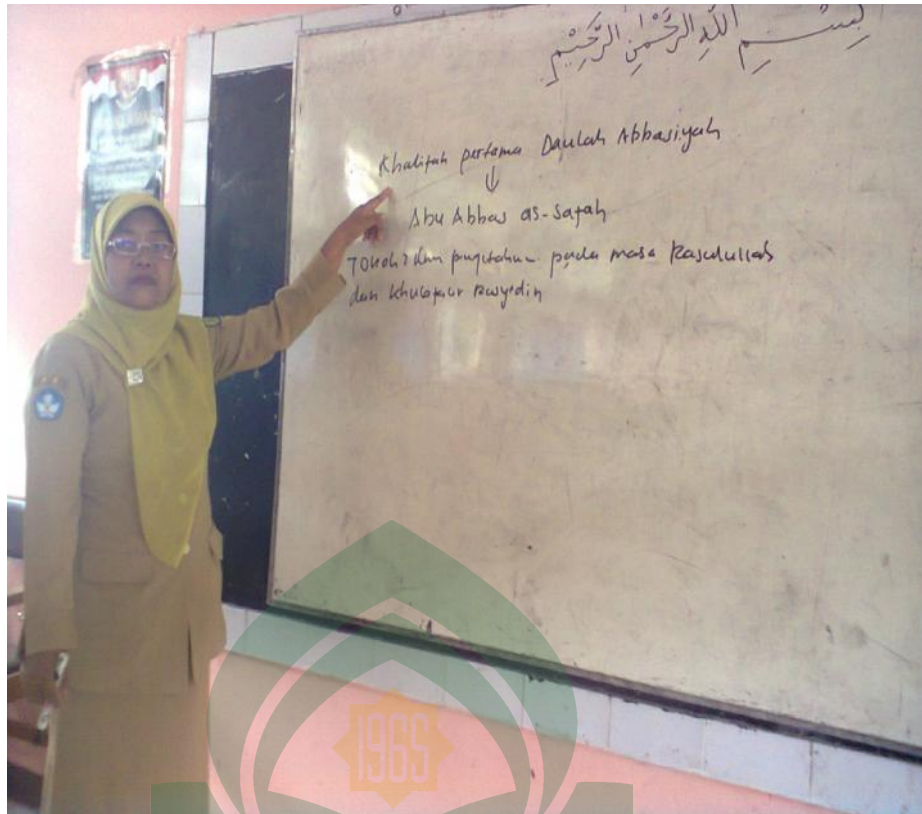 بِسْمِ اللَّهِ الرَّحْمَنِ الرَّحِيمِ
Khalifah pertama Daulah Abbasiyah
↓
Abu Abbas as-Safah
Tokoh2 dan pada masa Rasulullah
dan Khulafaur Rasyidin
1965